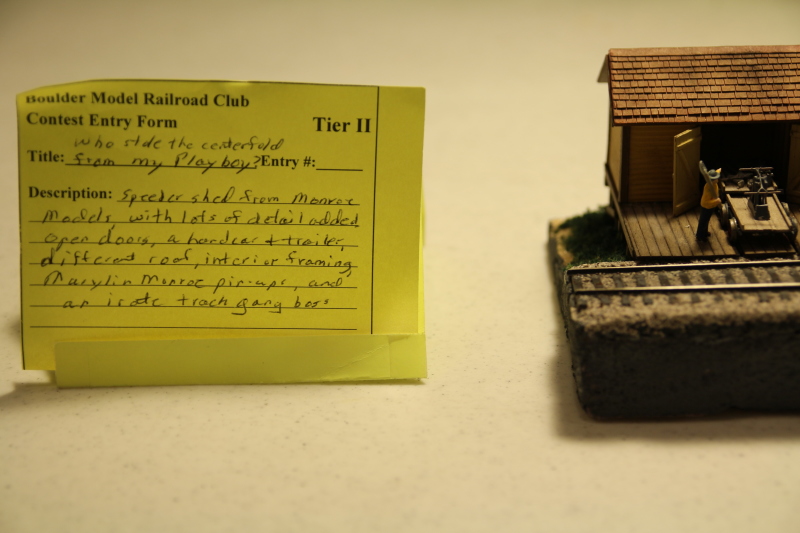 Boulder Model Railroad Club
Contest Entry Form Tier II
who stole the centerfold
Title: from my Playboy? Entry #:
Description: Speeder shed from Monroe
Models, with lots of detail added
open doors, a handcar + trailer,
different roof, interior framing
Marylin Monroe pin-ups, and
an irate track gang boss